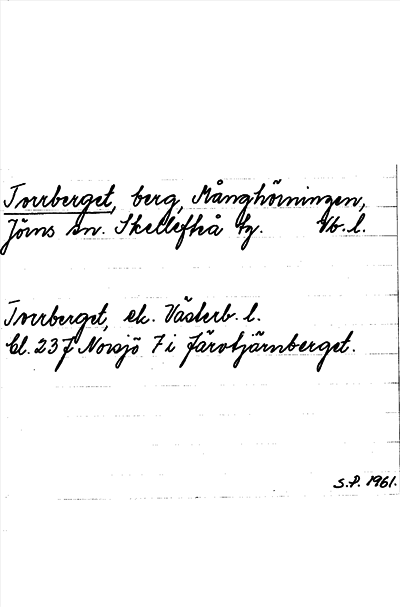 Torrberget, berg, Månghörningen,
Jörns sn. Skellefteå tg. Vb. l.
Torrberget, ek. Västerb. l.
bl. 237 Norsjö 7 i Järvtjärnberget.
S.P. 1961.